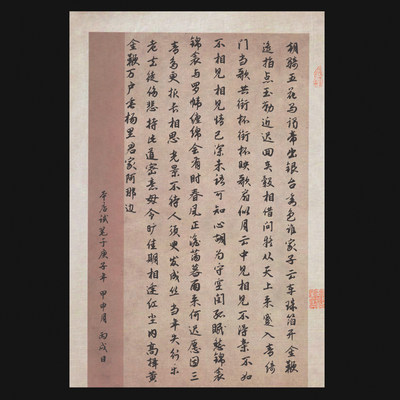 朝騎五花馬謁帝出银台秀色谁家子云车珠箔開金鞭
遥指点玉勒近迟回夹毂相借问疑从天上来蹙入青绮
门当歌共衔杯衔杯映歌扇似月云中見相見不得亲不如
不相見相見情已深未语可知心胡为守空闺孤眠愁锦衾
锦衾与罗帏缠绵会有时春風正澹荡暮雨来何迟愿因三
青鸟更报长相思光景不待人须臾发成丝当年失行乐
老去徒伤悲持此道密意毋令旷佳期相逢红尘内高揖黄
金鞭万户垂杨里君家阿那边
本店试笔于庚子年 甲申月 丙戌日